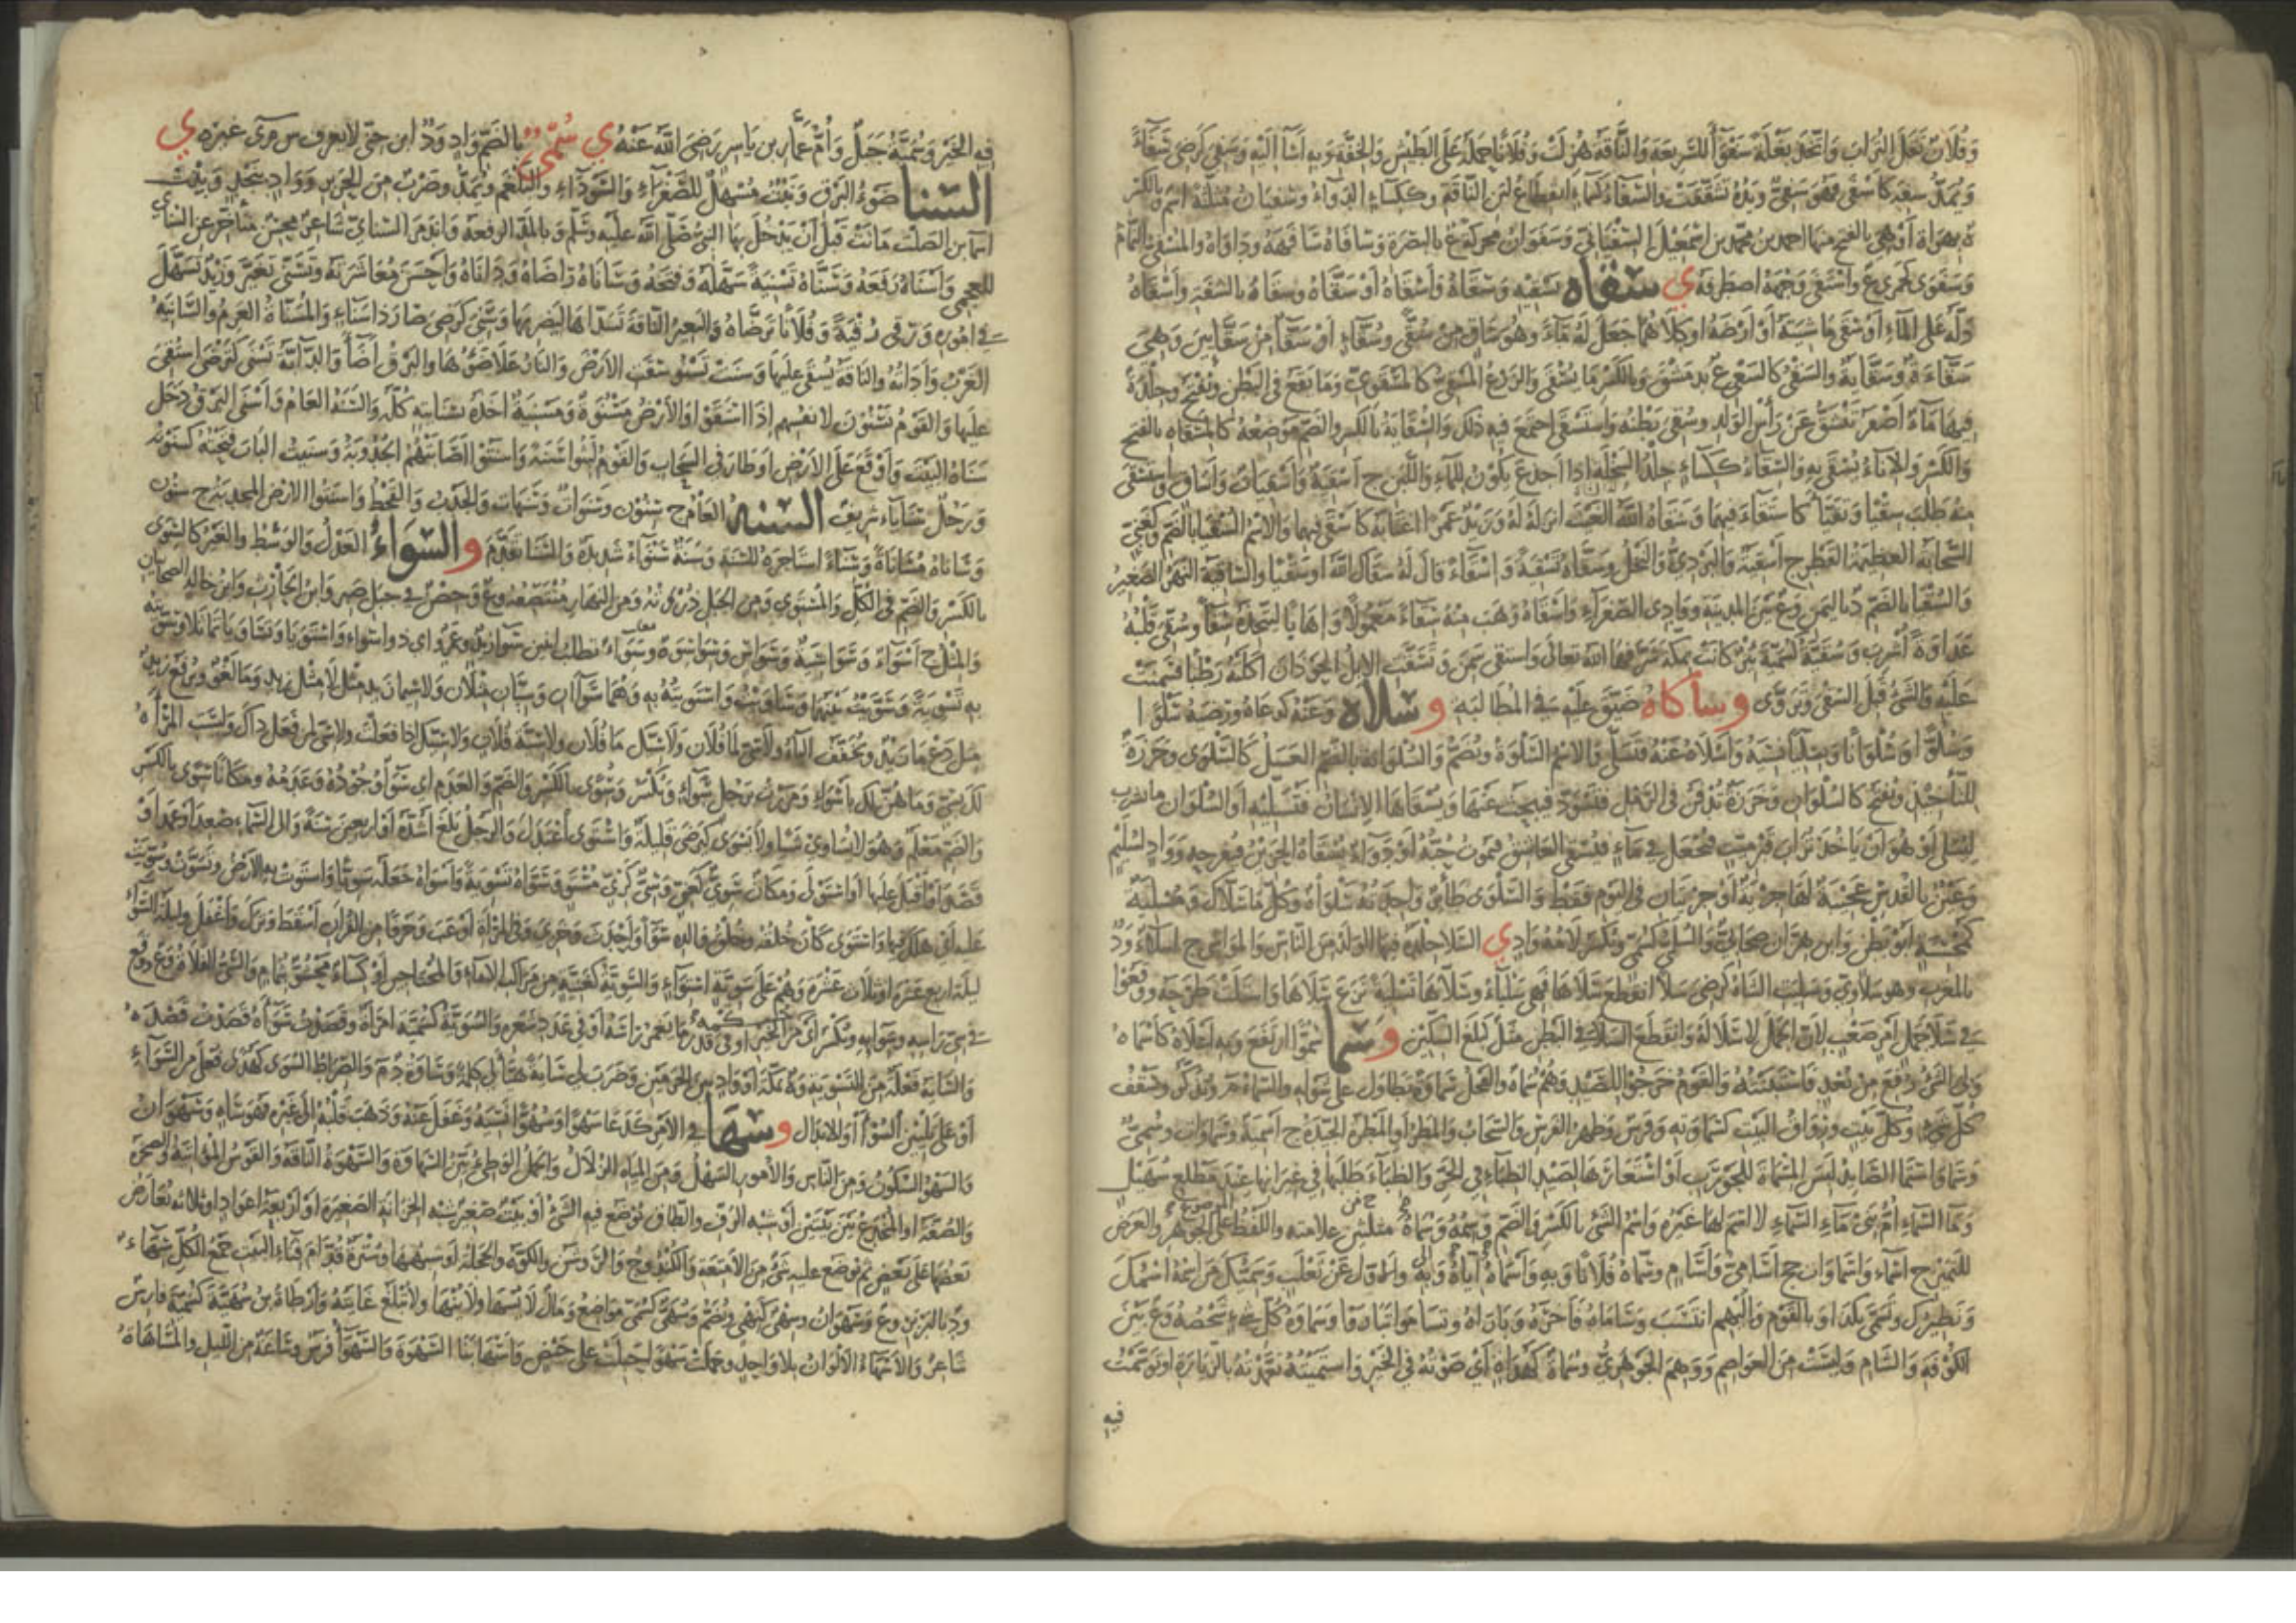 وفلان نقل التراب واتخذ بغلة سفواء للسريعة والناقة هزلت وفلانا حمله على الطيش والخفة وبه أساء إليه وسفي كرضي سفاء
ويمد سفه كأسفى فهو سفي ويده تشققت والسفاء كسماء انقطاع لبن الناقة وككساء الدواء وسفيان مثلثة اسم بالكسر
ة بهراة أو هي بالفتح منها أحمد بن محمد بن إسمعيل السفياني وسفوان محركة ع بالبصرة وسافاه سافهه وداواه والمسفي النمام
وسفوى كجمزى ع واستفى وجهه اصطرفه ي سقاه يسقيه وسقاه وأسقاه أو سقاه وسقاه بالشفة وأسقاه
دله على الماء أو سقى ماشيته أو أرضه أو كلاهما جعل له ماء وهو ساق من سقى وسقاء أو سقاء من سقائين وهي
سقاءة وسقاية والسقي كالسعي ع بدمشق وبالكسر ما يسقى والزرع المسقي كالمسقوي وما يقع في البطن ويفتح وجلدة
فيها ماء أصفر تنشق عن رأس الولد وسقى بطنه واستسقى اجتمع فيه ذلك والسقاية بالكسر والضم موضعه كالمسقاة بالفتح
والكسر والإناء يسقى به والسقاء ككساء جلد السخلة إذا أجذع يكون للماء واللبن ج أسقية وأسقيات وأساق واستسقى
منه طلب سقيا وتقيا كاستقاء فيهما وسقاه الله الغيث أنزله له وزيد عمرا اغتابه كأسقى فيهما والاسم السقيا بالضم وكغني
السحابة العظيمة القطر ج أسقية والبردي والنخل وسقاه تسقية وأسقاه قال له سقاك الله أو سقيا والساقية النهر الصغير
والسقيا بالضم د باليمن وع بين المدينة ووادي الصفراء وأسقاه وهب منه سقاء معمولا وإهابا ليتخذه سقاء وسقى قلبه
عداوة أشرب وسقية كسمية بئر كانت بمكة شرفها الله تعالى واستقى سمن وتسقت الإبل الحوذان أكلته رطبا فسمنت
عليه والشيء قبل السقي وتروى وساكاه ضيق عليه في المطالبة وسلاه وعنه كدعاه ورضيه سلوا
وسلوا وسلوانا وسليا نسيه وأسلاه عنه فتسلى والاسم السلوة ويضم والسلوانة بالضم العسل كالسلوى وخرزة
للتأخيذ ويفتح كالسلوان وخرزة تدفن في الرمل فتسود فيبحث عنها ويسقاها الإنسان فتسليه أو السلوان ما يشرب
ليسلى أو هو أن يأخذ تراب قبر ميت فيجعل في ماء فيسقى العاشق فيموت حبه أو دواء يسقاه الحزين فيفرحه وواد لسليم
وعين بالقدس عجيبة لها جرية أو جريتان في اليوم فقط والسلوى طائر واحدته سلواة وكل ما سلاك ومسلية
كمحسنة أبو بطن وابن هزان صحابي والسلي كسمي وتكسر لامه واد ي السلا جلدة فيها الولد من الناس والمواشي ج أسلاء ود
بالمغرب وهو سلاوي وسليت الشاة كرضي سلا انقطع سلاها فهي سلياء وسلاها تسلية نزع سلاها وأسلت طرحته ووقعوا
في سلا جمل أمر صعب لأن الجمل لا سلا له وانقطع السلا في البطن مثل كبلغ السكين وسما سموا ارتفع وبه أعلاه كأسماه
ولي الشيء رفع من بعد فاستبنته والقوم خرجوا للصيد وهم سماة والفحل سماوة تطاول على شوله والسماء م وتذكر وسقف
كل شيء وكل بيت ورواق البيت كسماوته وفرس وظهر الفرس والسحاب والمطر أو المطرة الجيدة ج أسمية وسماوات وسمي
وسما واستمى الصائد لبس المسماة للجورب أو استعارها لصيد الظباء في الحر والظباء طلبها في غيرانها عند مطلع سهيل
وماء السماء أم بني ماء السماء لا اسم لها غيره واسم الشيء بالكسر والضم وسمه وسماه مثلثين علامته واللفظ الموضوع على الجوهر والعرض
للتمييز ج أسماء وأسماوات جج أسامي وأسام وسماه فلانا وبه وأسماه إياه وبه والأول عن ثعلب وسميك من اسمه اسمك
ونظيرك وتسمى بكذا وبالقوم وإليهم انتسب وساماه فاخره وباراه وتساموا تباروا وسماوة كل شيء شخصه وع بين
الكوفة والشام وليست من العواصم ووهم الجوهري وسماة كهواة أي صوته في الخير واستميته تعمدته بالزيارة أو توسمت
فيه
فيه الخير وسمية جبل وأم عمار بن ياسر رضي الله عنه ي سمي بالضم واد ود ابن حتى لا يعرف من سرى غيره ي
السنا ضوء البرق ونبت مسهل للصفراء والسوداء والبلغم ويمد وضرب من الحرير وواد بنجد وبنت
أسماء بن الصلت ماتت قبل أن يدخل بها النبي صلى الله عليه وسلم وبالمد الرفعة وأيدمر السنائي شاعر محسن متأخر عن السنائي
العجمي وأسناه رفعه وسناه تسنية سهله وفتحه وساناه راضاه وداناه وأحسن معاشرته وتسنى تغير وزيد تسهل
في أموره ورقي رقية وفلانا ترضاه والبعير الناقة تسداها ليضربها وسني كرضي صار ذا سناء والمسناة العرم والسانية
الغرب وأداته والناقة يسقى عليها وسنت تسنو سقت الأرض والنار علا ضوءها والبرق أضاء والدابة تسنى كترضى استقي
عليها والقوم يسنون لأنفسهم إذا استقوا والأرض مسنوة ومسنية أخذه بسنايته كله والسنة العام وأسنى البرق دخل
سناه البيت ووقع على الأرض أو طار في السحاب والقوم لبثوا سنة وأسنتوا أصابتهم الجدوبة وسنيت الباب فتحته كسنوته
ورجل سنايا شريف السنة العام ج سنون وسنوات وسنهات والجدب والقحط وأسنتوا الأرض المجدبة ج سنون
وساناه مساناة وسناء استأجره للسنة وسنة سنواء شديدة والسنا تقدم والسواء العدل والوسط والغير كالسوى
بالكسر والضم في الكل والمستوي ومن الجبل ذروته ومن النهار منتصفه وع وحصن في جبل صبر وابن الحارث وابن خالد الصحابيان
والمثل ج أسواء وسواسية وسواس وسواسوة وسواء تطلب اثنين سواء زيد وعمرو أي ذوا سواء واستويا وتساويا تماثلا وسويته
به تسوية وسويت بينهما وساويت وأسويته به وهما سواآن وسيان مثلان ولا سيما زيد مثل لا مثل زيد وما لغو ويرفع زيد
مثل دع ما زيد وتخفف الياء ولا سي لما فلان ولا سيك ما فلان ولا سية فلان ولا سيك إذا فعلت ولا سي لمن فعل ذلك وليست المرأة
لك بسي وما هن لك بأسواء ومررت برجل سواء وتكسر وسوى بالكسر والضم والعدم أي سواء وجوده وعدمه ومكانا سوى بالكسر
والضم معلم وهو لا يساوي شيئا ولا يسوى كيرضى قليلة واستوى اعتدل والرجل بلغ أشده أو أربعين سنة وإلى السماء صعد أو عمد أو
قصد أو أقبل عليها أو استولى ومكان سوي كغني وسي كزي مستو وسواه تسوية وأسواه جعله سويا واستوت به الأرض وتسوت وسويت
عليه أي هلك فيها واستوى كان خلقه وخلق والده سواء وأحدث وخزي وفي المرأة أوعب وحرفا من القرآن أسقط وترك وأغفل وليلة السواء
ليلة أربع عشرة أو ثلاث عشرة وهم على سوية استواء والسوية كغنية من مراكب الإماء والمحتاجين أو كساء محشو بثمام والسي الفلاة وع ووقع
في سي رأسه وسوائه وتكسر أي من الخير أو في قدر ما يغمر رأسه أو في عدد شعره والسوية كسمية امرأة وقصدت سواه قصدت قصده
والسابة فعلة من التسوية وة بمكة أو واد بين الحرمين وضرب لي ساية هيأ لي كلمة وساوة د م والصراط السوى كهدى فعل من السواء
أو على تليين السوأى أو للإبدال وسها في الأمر كدعا سهوا وسهوا نسيه وغفل عنه وذهب قلبه إلى غيره فهو ساه وسهوان
والسهو السكون ومن الناس والأمور السهل ومن المياه الزلال والجمل الوطيء بين السهاوة والسهوة الناقة والقوس المواتية والصخرة
والصفة أو المخدع بين بيتين أو شبه الرف والطاق يوضع فيه الشيء أو بيت صغير شبه الخزانة الصغيرة أو أربعة أعواد أو ثلاثة يعارض
بعضها على بعض ثم يوضع عليه شيء من الأمتعة والكندوج والروشن والكوة والحجلة أو شبهها وسترة قدام فناء البيت جمع الكل سهاء
ود بالبربر وع وسهوان وسهي كنهي ويضم وسهي كسمي مواضع ومال لا يسهى ولا ينهى ولا تبلغ غايته وأرطاة بن سهية كسمية فارس
شاعر والأسهاء الألوان بلا واحد وحملت سهوا حبلت على حيض وأسهى بنى السهوة والسهواء فرس وساعة من الليل والمساهاة